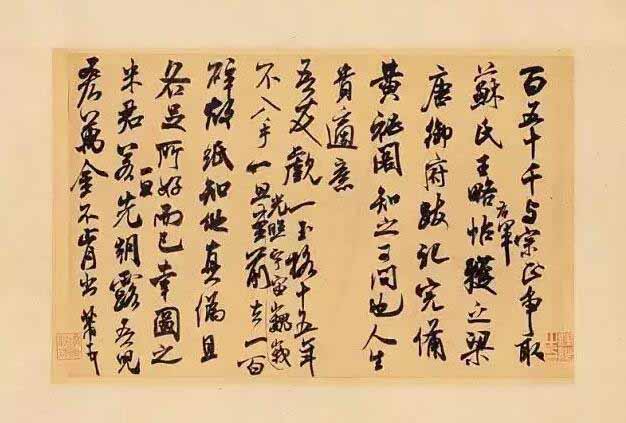 百五十千与宗正争取
蘇氏王略帖右軍獲之梁
唐御府跋記完備
黄祕閣知之可问也人生
貴適意
吾友觑一玉格十五年
不入手一旦光照宇宙巍峩至前去一百
碎故紙知他真偽且
各足所好而已幸圖之
米君若一旦先朝露吾兒
吝萬金不肯出芾